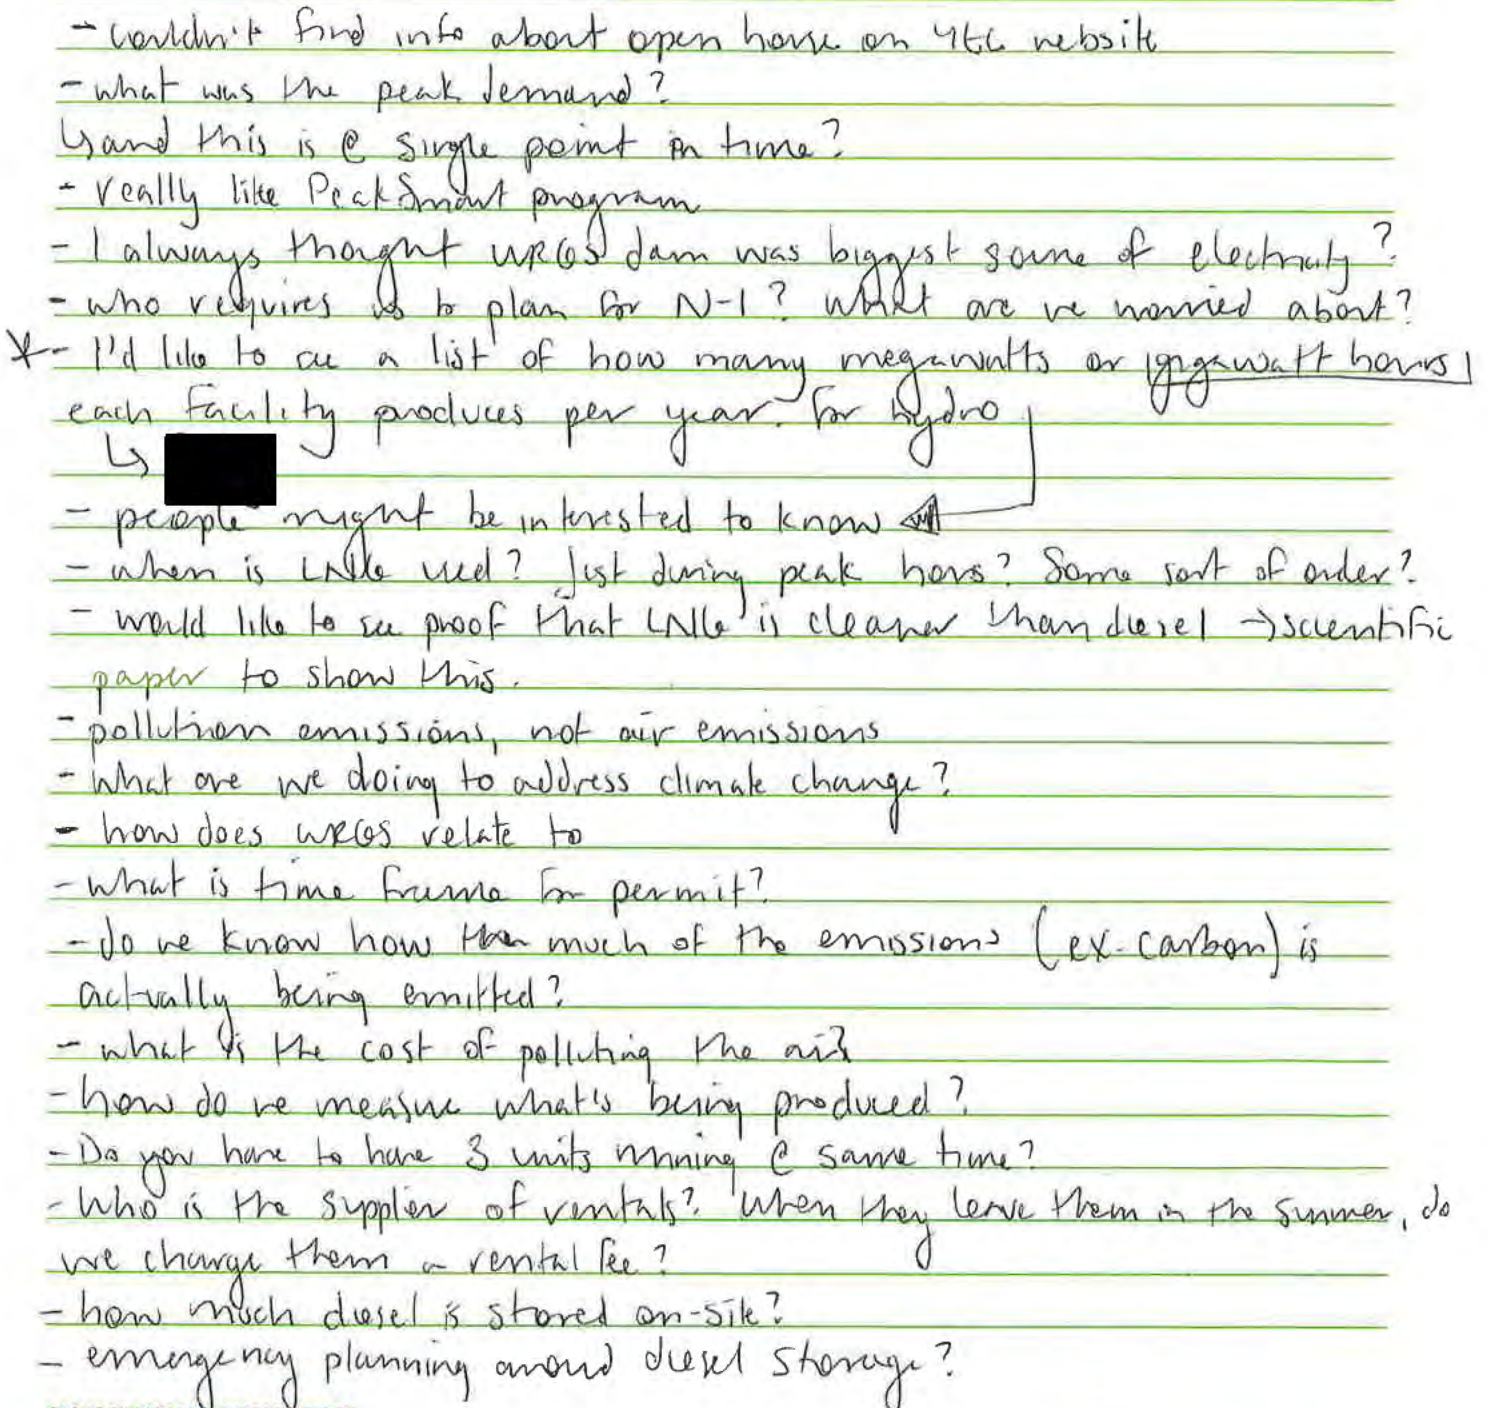 - couldn't find info about open house on YEC website
- what was the peak demand?
↳ and this is @ single point in time?
- really like PeakSmart program
- I always thought WRGS dam was biggest source of electricity?
- who requires us to plan for N-1? What are we worried about?
* - I'd like to see a list of how many megawatts or gigawatt hours
each facility produces per year. for hydro
↳
- people might be interested to know
- when is LNG used? Just during peak hours? Some sort of order?
- would like to see proof that LNG is cleaner than diesel → scientific
paper to show this.
- pollution emissions, not air emissions
- What are we doing to address climate change?
- how does WRGS relate to
- what is time frame for permit?
- do we know how much of the emissions (ex-carbon) is
actually being emitted?
- what is the cost of polluting the air?
- how do we measure what's being produced?
- Do you have to have 3 units running @ same time?
- Who is the supplier of rentals? When they leave them in the summer, do
we charge them a rental fee?
- how much diesel is stored on-site?
- emergency planning around diesel storage?